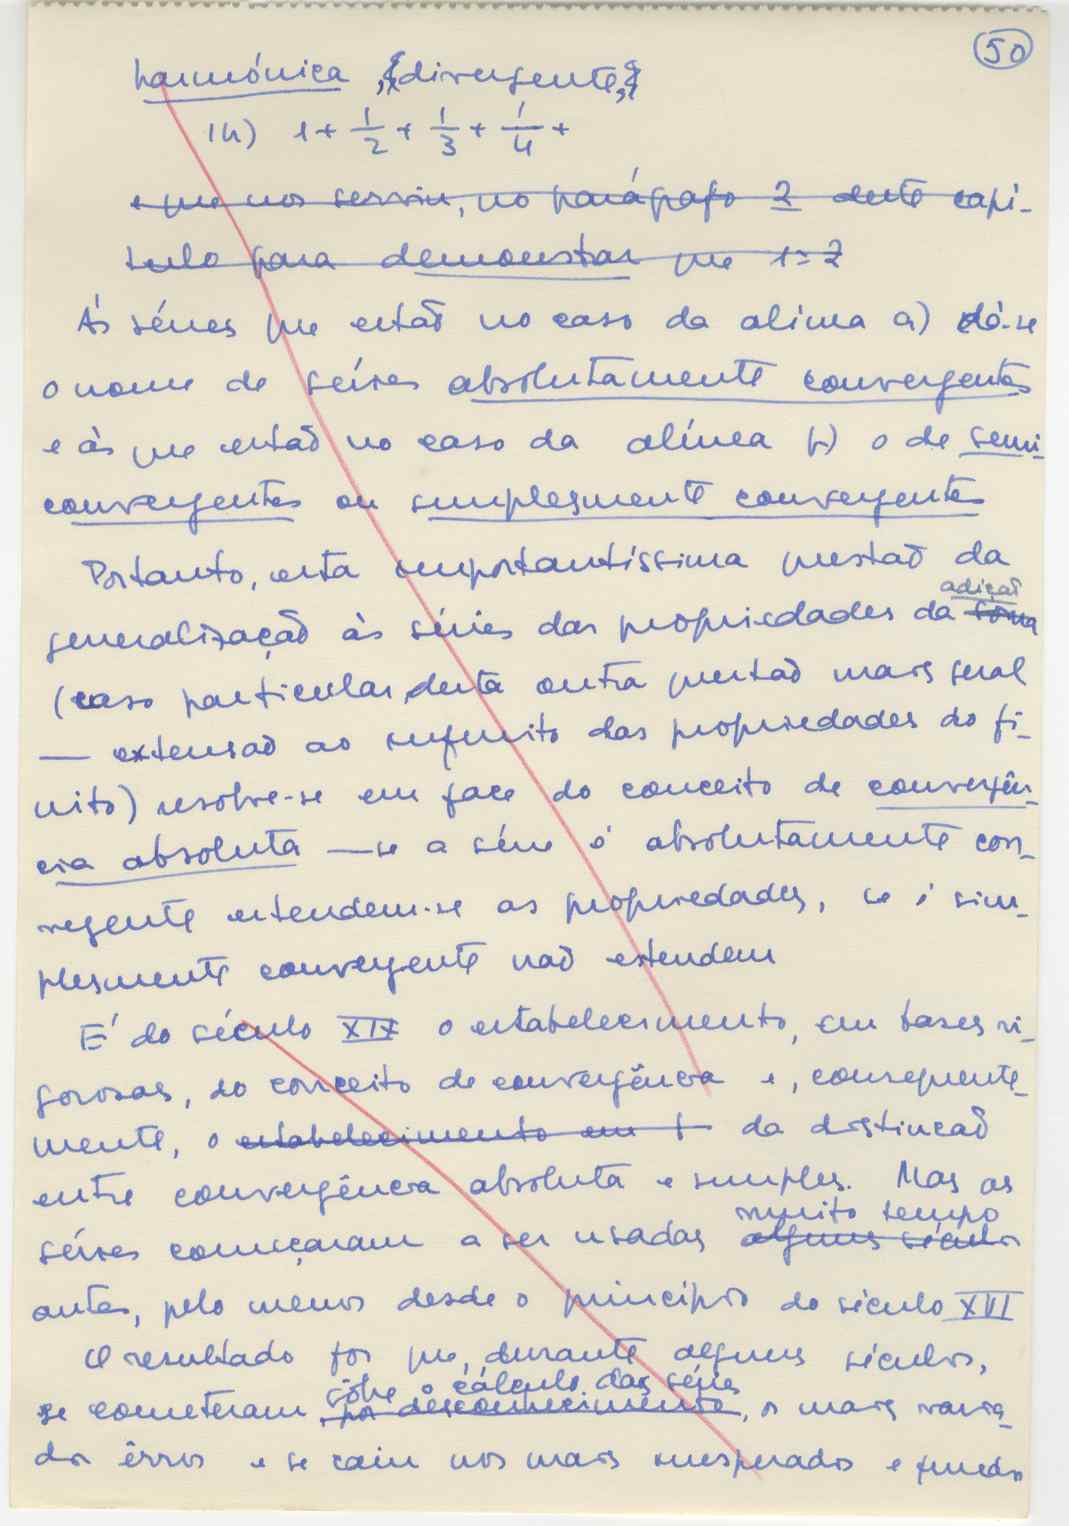 50
harmónica, (divergente,)
14) 1 + 1/2 + 1/3 + 1/4 +
e que nos serviu, no parágrafo 2 deste capí-
tulo para demonstrar que 1=2
Às séries que estão no caso da alínea a) dá-se
o nome de séries absolutamente convergentes
e às que estão no caso da alínea b) o de semi-
convergentes ou simplesmente convergentes
Portanto, esta importantíssima questão da
adição
generalização às séries das propriedades da soma
(caso particular, desta outra questão mais geral
— extensão ao infinito das propriedades do fi-
nito) resolve-se em face do conceito de convergên-
cia absoluta — se a série é absolutamente con-
vergente estendem-se as propriedades, se é sim-
plesmente convergente não estendem
É do século XIX o estabelecimento, em bases ri-
gorosas, do conceito de convergência e, consequente-
mente, o estabelecimento em b da distinção
entre convergência absoluta e simples. Mas as
muito tempo
séries começaram a ser usadas alguns séculos
antes, pelo menos desde o princípio do século XVII
O resultado foi que, durante alguns séculos,
sôbre o cálculo das séries
se cometeram, por desconhecimento, os mais varia-
dos êrros e se caiu nos mais inesperados e